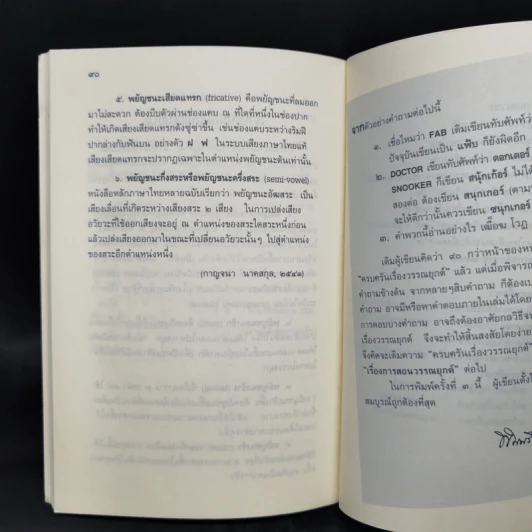 ๙๐
๕. พยัญชนะเสียดแทรก (fricative) คือพยัญชนะที่ลมออก
มาไม่สะดวก ต้องบีบตัวผ่านช่องแคบ ณ ที่ใดที่หนึ่งในช่องปาก
ทำให้เกิดเสียงเสียดแทรกดังซู่ซ่าขึ้น เช่นช่องแคบระหว่างริมฝี
ปากล่างกับฟันบน อย่างตัว ฝ ฟ ในระบบเสียงภาษาไทยแท้
เสียงเสียดแทรกจะปรากฏเฉพาะในตำแหน่งพยัญชนะต้นเท่านั้น
๖. พยัญชนะกึ่งสระหรือพยัญชนะครึ่งสระ (semi-vowel)
หนังสือหลักภาษาไทยหลายฉบับเรียกว่า พยัญชนะอัฒสระ เป็น
เสียงเลื่อนที่เกิดระหว่างเสียงสระ ๒ เสียง ในการเปล่งเสียง
อวัยวะที่ใช้ออกเสียงจะอยู่ ณ ตำแหน่งของสระใดสระหนึ่งก่อน
แล้วเปล่งเสียงออกมาในขณะที่เปลี่ยนอวัยวะนั้นๆ ไปสู่ตำแหน่ง
ของสระอีกตำแหน่งหนึ่ง
(กาญจนา นาคสกุล, ๒๕๔๑)
จากตัวอย่างคำถามต่อไปนี้
๑. เชื่อไหมว่า FAB เดิมเขียนทับศัพท์ว่า
ปัจจุบันเขียนเป็น แฟ้บ ก็ยังผิดอีก
๒. DOCTOR เขียนทับศัพท์ว่า ดอกเตอร์
SNOOKER ก็เขียน สนุ้กเก้อร์ ไม่ได้
สองต่อ ต้องเขียน สนุกเกอร์ (ตาม
จะให้ดีกว่านั้นควรเขียน ซนุกเกอร์
๓. คำพวกนี้อ่านอย่างไร
เดิมผู้เขียนคิดว่า ๙๐ กว่าหน้าของห
"ครบครันเรื่องวรรณยุกต์" แล้ว แต่เมื่อพิจาร
คำถามข้างต้น จากหลายๆสิบคำถาม ก็ต้องเป
คำถาม อาจมีหรือหาคำตอบภายในเล่มได้โดย
การตอบบางคำถาม อาจถึงต้องอาศัยกลวิธีจ
เรื่องวรรณยุกต์ จึงจะทำให้สิ้นสงสัยโดยง่าย
จึงคิดจะเติมความ "ครบครันเรื่องวรรณยุกต์"
"เรื่องการสอนวรรณยุกต์" ต่อไป
ในการพิมพ์ครั้งที่ ๓ นี้ ผู้เขียนตั้ง
สมบูรณ์ถูกต้องที่สุด